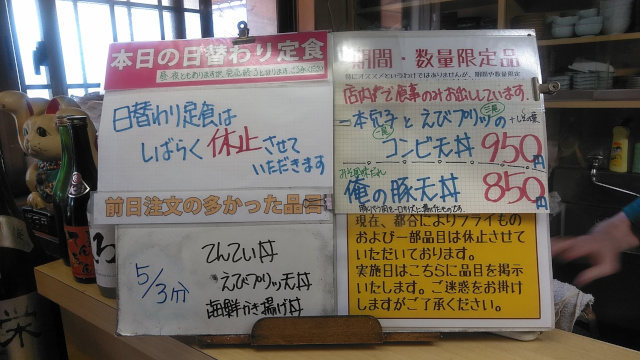 本日の日替わり定食
日替わり定食は
しばらく休止させて
いただきます
前日注文の多かった品目
5/3分
てんてい丼
えびプリッ天丼
海鮮かき揚げ丼
期間・数量限定品
特にオススメというわけではありませんが、期間や数量限定
店内で食事のみお出ししています。
一本穴子とえびプリッの
コンビ天丼 950円
俺の豚天丼 850円
現在、都合によりフライもの
および一部品目は休止させて
いただいております。
実施日はこちらに品目を掲示
いたします。ご迷惑をお掛け
しますがご了承ください。
栄